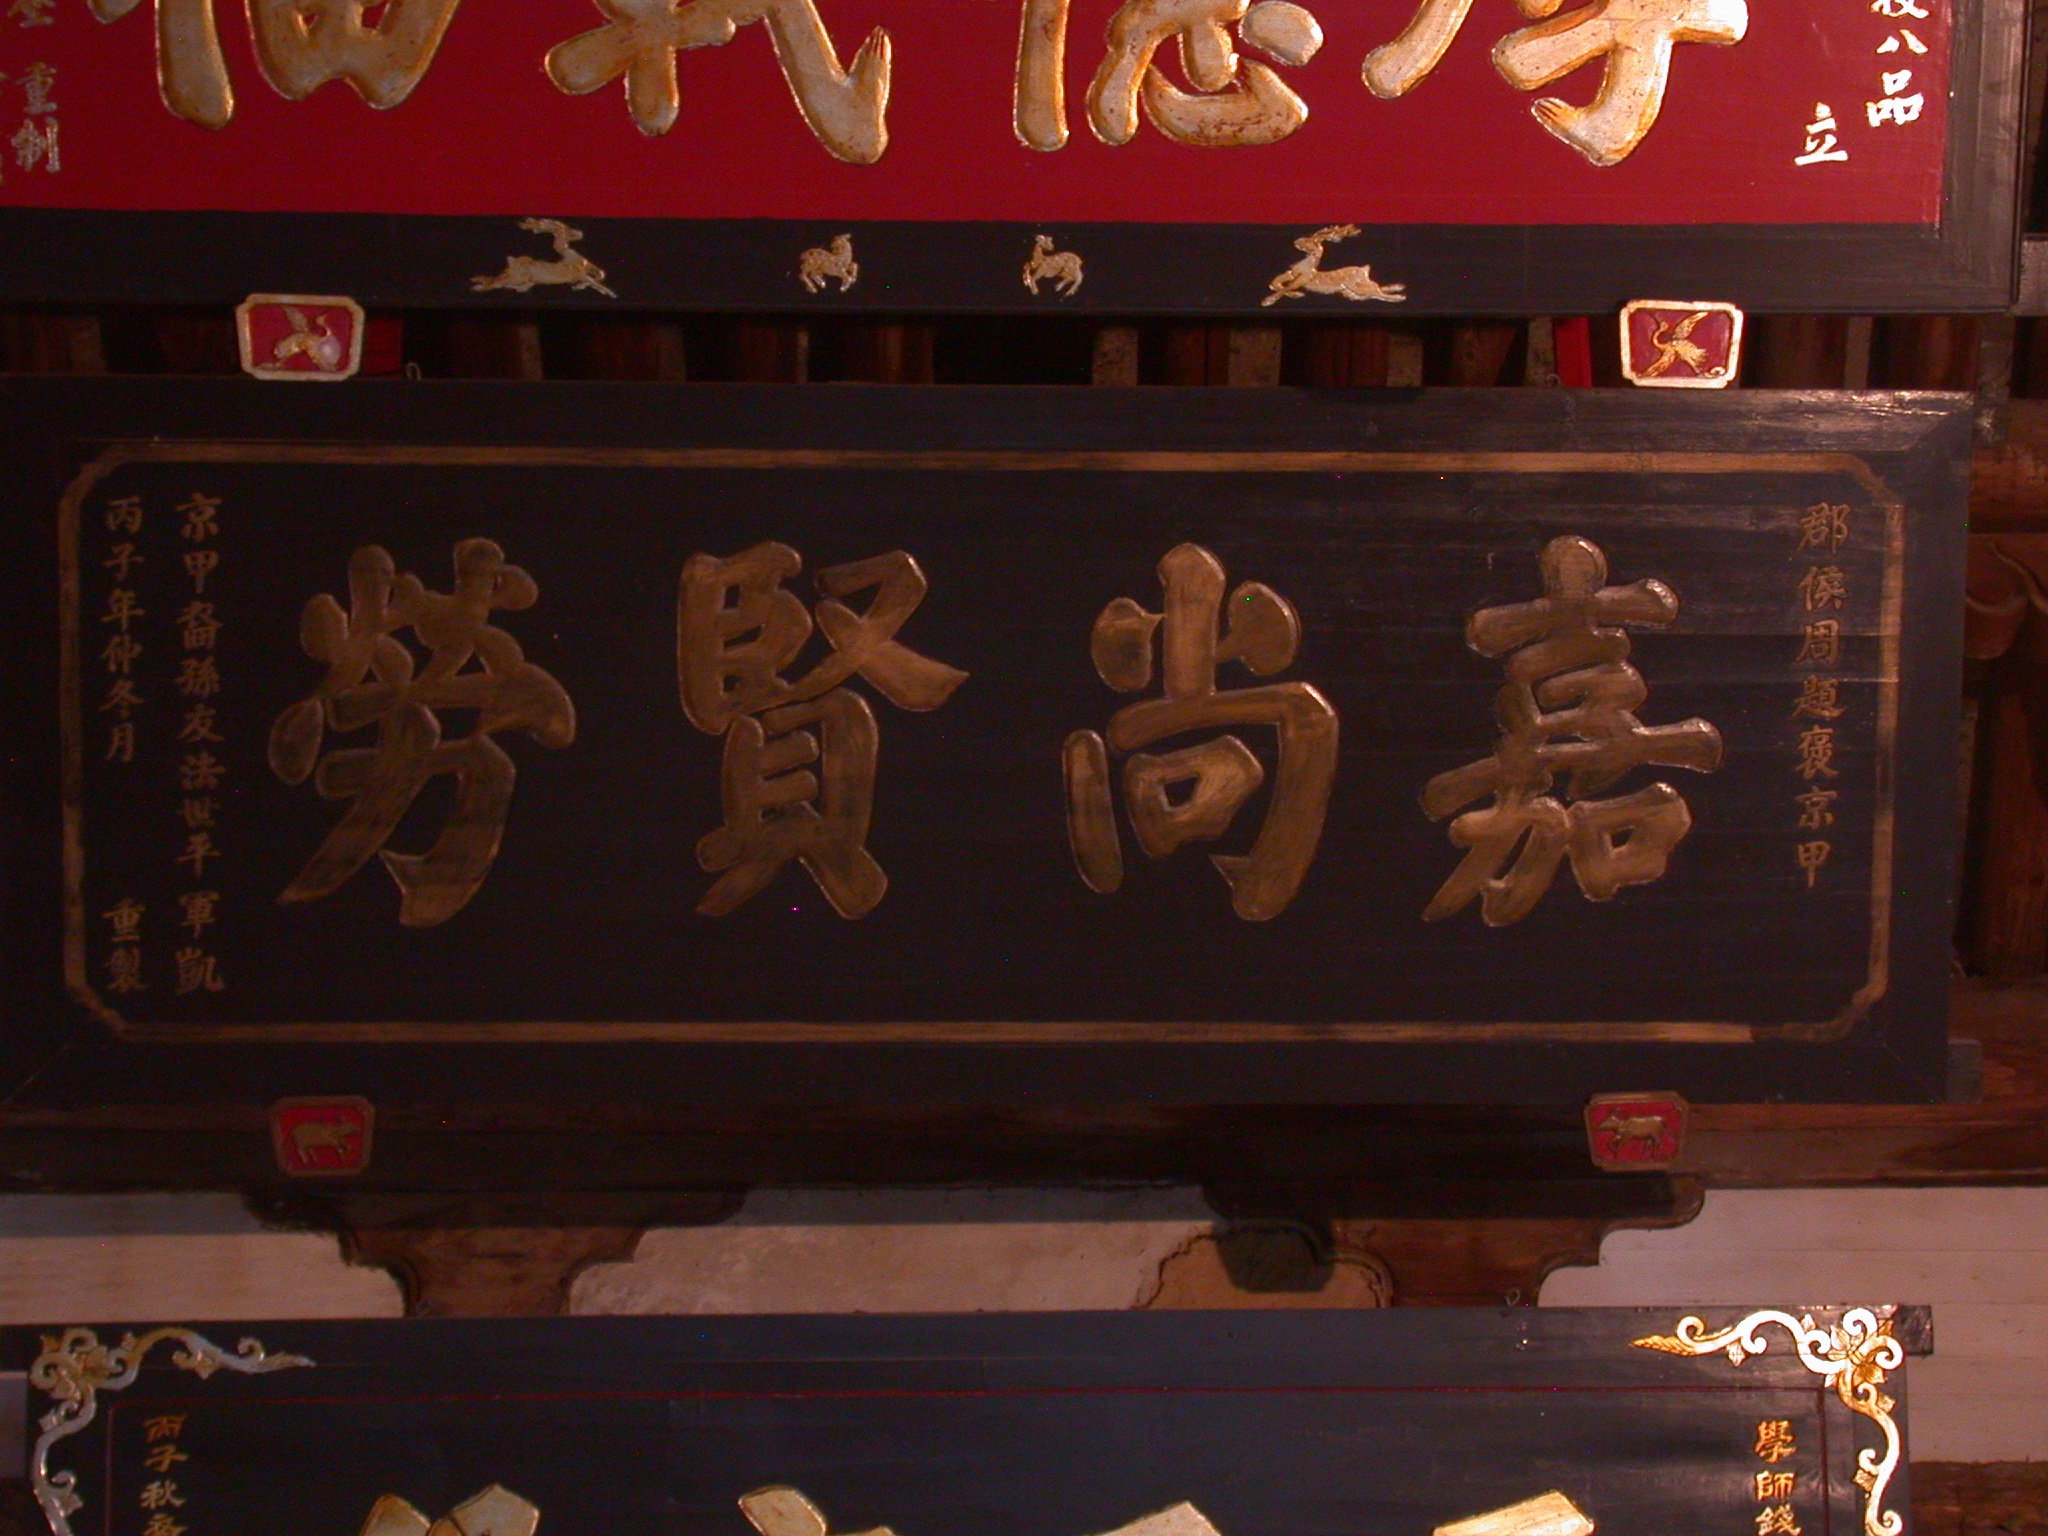 八品
立
厚德載福
重制
郡侯周題褒京甲
嘉尚賢勞
京甲裔孫友法世平軍凱
丙子年仲冬月 重製
學師錢
丙子秋